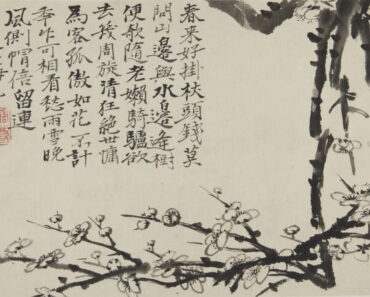 春來好掛杖頭錢莫
問山邊與水邊逢樹
便歌隨老嬾騎驢欲
去我周旋清狂絕世慵
為客孤傲如花不計
季乍可相看愁雨雪晚
風側帽倍留連